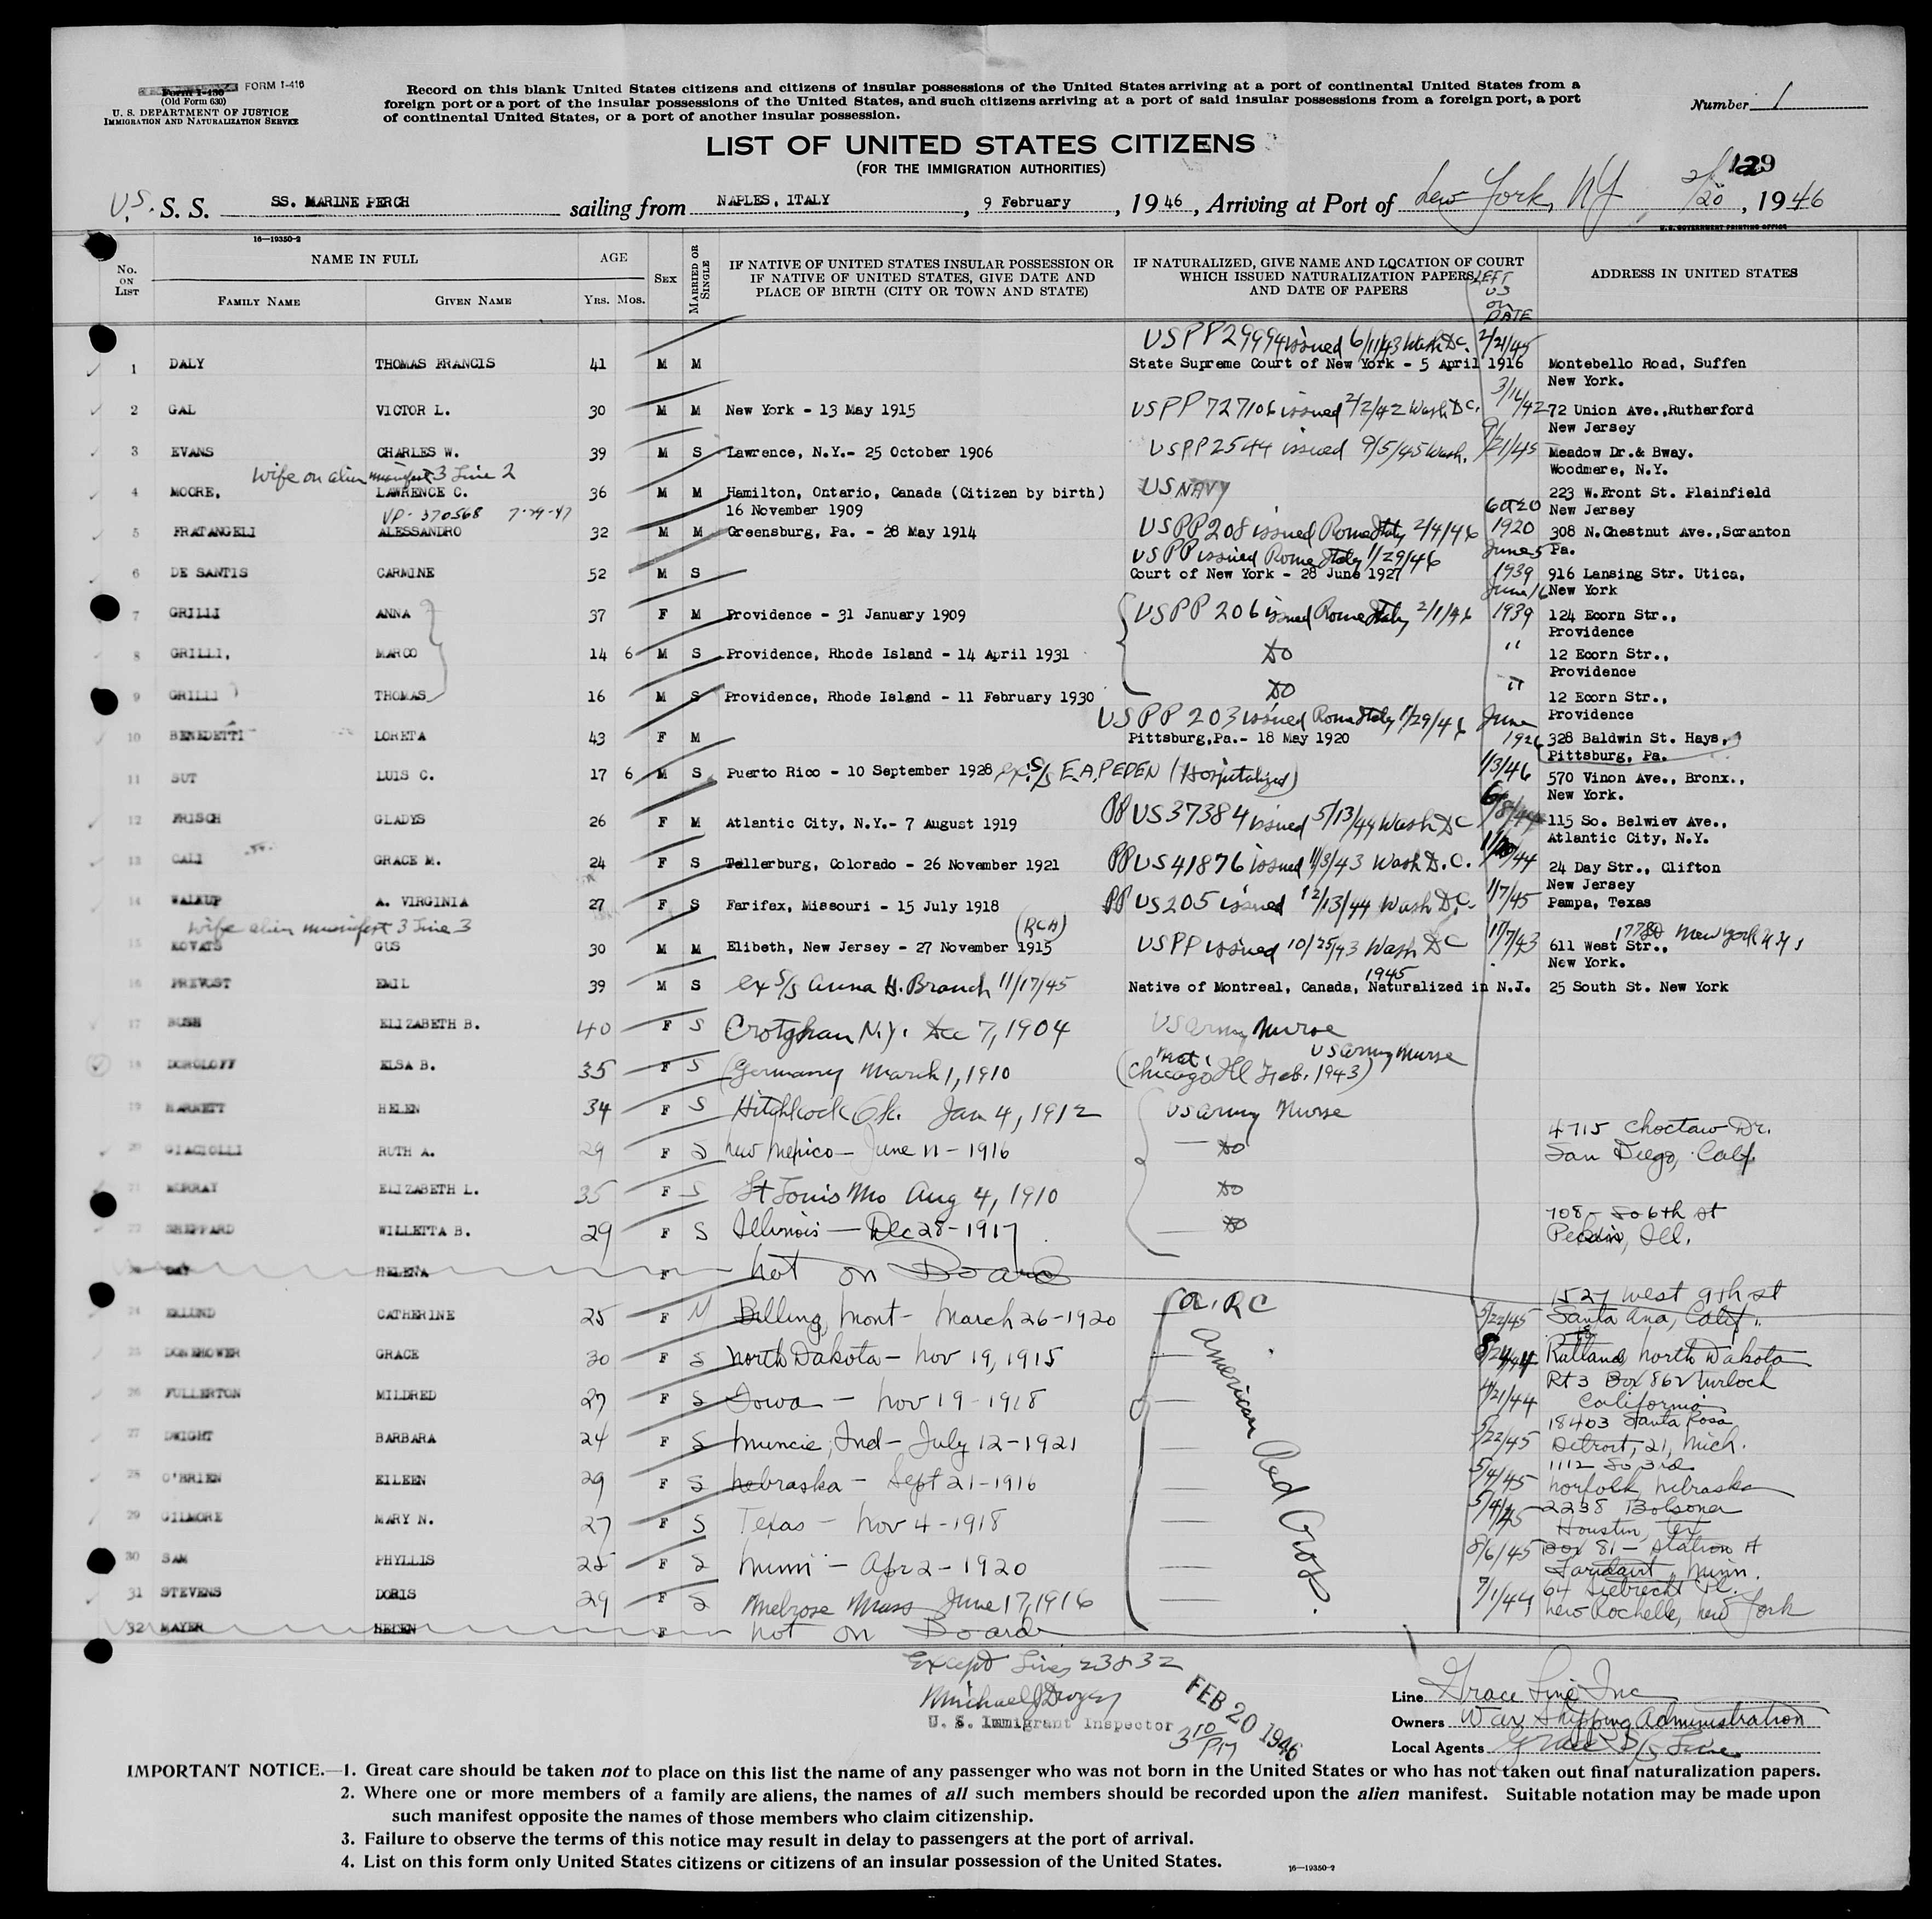 Form I-430 FORM I-416
(Old Form 630)
U. S. DEPARTMENT OF JUSTICE
IMMIGRATION AND NATURALIZATION SERVICE
Record on this blank United States citizens and citizens of insular possessions of the United States arriving at a port of continental United States from a
foreign port or a port of the insular possessions of the United States, and such citizens arriving at a port of said insular possessions from a foreign port, a port
of continental United States, or a port of another insular possession.
Number 1
LIST OF UNITED STATES CITIZENS
(FOR THE IMMIGRATION AUTHORITIES)
129
U.S. S. S. SS. MARINE PERCH sailing from NAPLES, ITALY, 9 February, 1946, Arriving at Port of New York, NY 2/20, 1946
16—19350-2
U.S. GOVERNMENT PRINTING OFFICE
No. ON LIST
NAME IN FULL
FAMILY NAME GIVEN NAME
AGE
YRS. MOS.
SEX
MARRIED OR SINGLE
IF NATIVE OF UNITED STATES INSULAR POSSESSION OR
IF NATIVE OF UNITED STATES, GIVE DATE AND
PLACE OF BIRTH (CITY OR TOWN AND STATE)
IF NATURALIZED, GIVE NAME AND LOCATION OF COURT
WHICH ISSUED NATURALIZATION PAPERS,
AND DATE OF PAPERS
LEFT US on DATE
ADDRESS IN UNITED STATES
USPP 29994 issued 6/11/43 Wash DC. 2/21/45
1 DALY THOMAS FRANCIS 41 M M State Supreme Court of New York - 5 April 1916 Montebello Road, Suffen
New York.
2 GAL VICTOR L. 30 M M New York - 13 May 1915 USPP 727106 issued 2/2/42 Wash DC. 3/16/42 72 Union Ave.,Rutherford
New Jersey
3 EVANS CHARLES W. 39 M S Lawrence, N.Y.- 25 October 1906 USPP 2544 issued 9/5/45 Wash. 9/21/45 Meadow Dr.& Bway.
Woodmere, N.Y.
Wife on alien manifest 3 Line 2
4 MOORE, LAWRENCE C. 36 M M Hamilton, Ontario, Canada (Citizen by birth) US NAVY 223 W.Front St. Plainfield
16 November 1909 New Jersey
VP- 370568 7-29-47
5 FRATANGELI ALESSANDRO 32 M M Greensburg, Pa. - 28 May 1914 USPP 208 issued Rome Italy 2/4/46 1920 308 N.Chestnut Ave.,Scranton
Pa.
USPP issued Rome Italy 1/29/46 June 5
6 DE SANTIS CARMINE 52 M S Court of New York - 28 June 1927 1939 916 Lansing Str. Utica,
New York
7 GRILLI ANNA 37 F M Providence - 31 January 1909 USPP 206 issued Rome Italy 2/1/46 June 16 1939 124 Ecorn Str.,
Providence
8 GRILLI, MARCO 14 6 M S Providence, Rhode Island - 14 April 1931 DO " 12 Ecorn Str.,
Providence
9 GRILLI THOMAS 16 M S Providence, Rhode Island - 11 February 1930 DO " 12 Ecorn Str.,
Providence
USPP 203 issued Rome Italy 1/29/46 June
10 BENEDETTI LORETA 43 F M Pittsburg,Pa.- 18 May 1920 1926 328 Baldwin St. Hays,
Pittsburg, Pa.
11 SUT LUIS C. 17 6 M S Puerto Rico - 10 September 1928 ex: S/S E.A. PEDEN (Hospitalized) 1/3/46 570 Vinon Ave., Bronx.,
New York.
12 FRISCH GLADYS 26 F M Atlantic City, N.Y.- 7 August 1919 PP US 37384 issued 5/13/44 Wash DC 6/8/44 115 So. Belwiev Ave.,
Atlantic City, N.Y.
13 CALI GRACE M. 24 F S Tellerburg, Colorado - 26 November 1921 PP US 41876 issued 11/3/43 Wash D.C. 24 Day Str., Clifton
New Jersey
14 WALKUP A. VIRGINIA 27 F S Farifax, Missouri - 15 July 1918 PP US 205 issued 12/13/44 Wash DC. 1/7/45 Pampa, Texas
Wife alien manifest 3 Line 3
15 KOVATS GUS 30 M M Elibeth, New Jersey - 27 November 1915 (RCH) USPP issued 10/25/43 Wash DC 11/7/43 611 West 177 St., New York NY
New York.
16 PREVOST EMIL 39 M S ex S/S Anna H. Branch 11/17/45 Native of Montreal, Canada, Naturalized in N.J. 1945 25 South St. New York
17 BUSH ELIZABETH B. 40 F S Crotghan N.Y. Dec 7, 1904 US Army Nurse
18 DOROLOFF ELSA B. 35 F S (Germany March 1, 1910 (Nat. Chicago Ill Feb. 1943) US Army Nurse
19 HARNETT HELEN 34 F S Hitchkock Ok. Jan 4, 1912 US Army Nurse
20 GIACIOLLI RUTH A. 29 F S New Mexico — June 11 - 1916 DO 4715 Choctaw Dr.
San Diego, Calif.
21 MURRAY ELIZABETH L. 35 F S St Louis Mo Aug 4, 1910 DO
22 SHEPPARD WILLETTA B. 29 F S Illinois — Dec 28 - 1917 DO 708 - So 6th st
Pekin, Ill.
23 DAY HELENA F not on Board
24 EKLUND CATHERINE 25 F M Billing, Mont - March 26 - 1920 A.R.C 5/22/45 1527 West 9th st
Santa Ana, Calif.
25 DONEHOWER GRACE 30 F S North Dakota - Nov 19, 1915 Rutland, North Dakota
26 FULLERTON MILDRED 27 F S Iowa — Nov 19 - 1918 4/21/44 Rt 3 Box 862 Turlock
California
27 DWIGHT BARBARA 24 F S Muncie, Ind - July 12 - 1921 5/22/45 18403 Santa Rosa
Detroit, 21, Mich.
28 O'BRIEN EILEEN 29 F S Nebraska - Sept 21 - 1916 5/4/45 1112 So 3rd
Norfolk, Nebraska
29 GILMORE MARY N. 27 F S Texas - Nov 4 - 1918 5/4/45 2238 Bolsover
Houston, Tex
30 SAM PHYLLIS 25 F S Minn - Apr 2 - 1920 8/6/45 Box 81 - Station A
Minn.
31 STEVENS DORIS 29 F S Melrose Mass June 17, 1916 7/1/44 64 Siebrecht Pl.
New Rochelle, New York
32 MAYER HELEN F not on Board
American Red Cross.
Except Lines 23 & 32
Michael
U. S. Immigrant Inspector
FEB 20 1946
3 10 PM
Line Grace Line Inc
Owners War Shipping Administration
Local Agents Grace S/S Line
IMPORTANT NOTICE.—1. Great care should be taken not to place on this list the name of any passenger who was not born in the United States or who has not taken out final naturalization papers.
2. Where one or more members of a family are aliens, the names of all such members should be recorded upon the alien manifest. Suitable notation may be made upon
such manifest opposite the names of those members who claim citizenship.
3. Failure to observe the terms of this notice may result in delay to passengers at the port of arrival.
4. List on this form only United States citizens or citizens of an insular possession of the United States.
16—19350-2